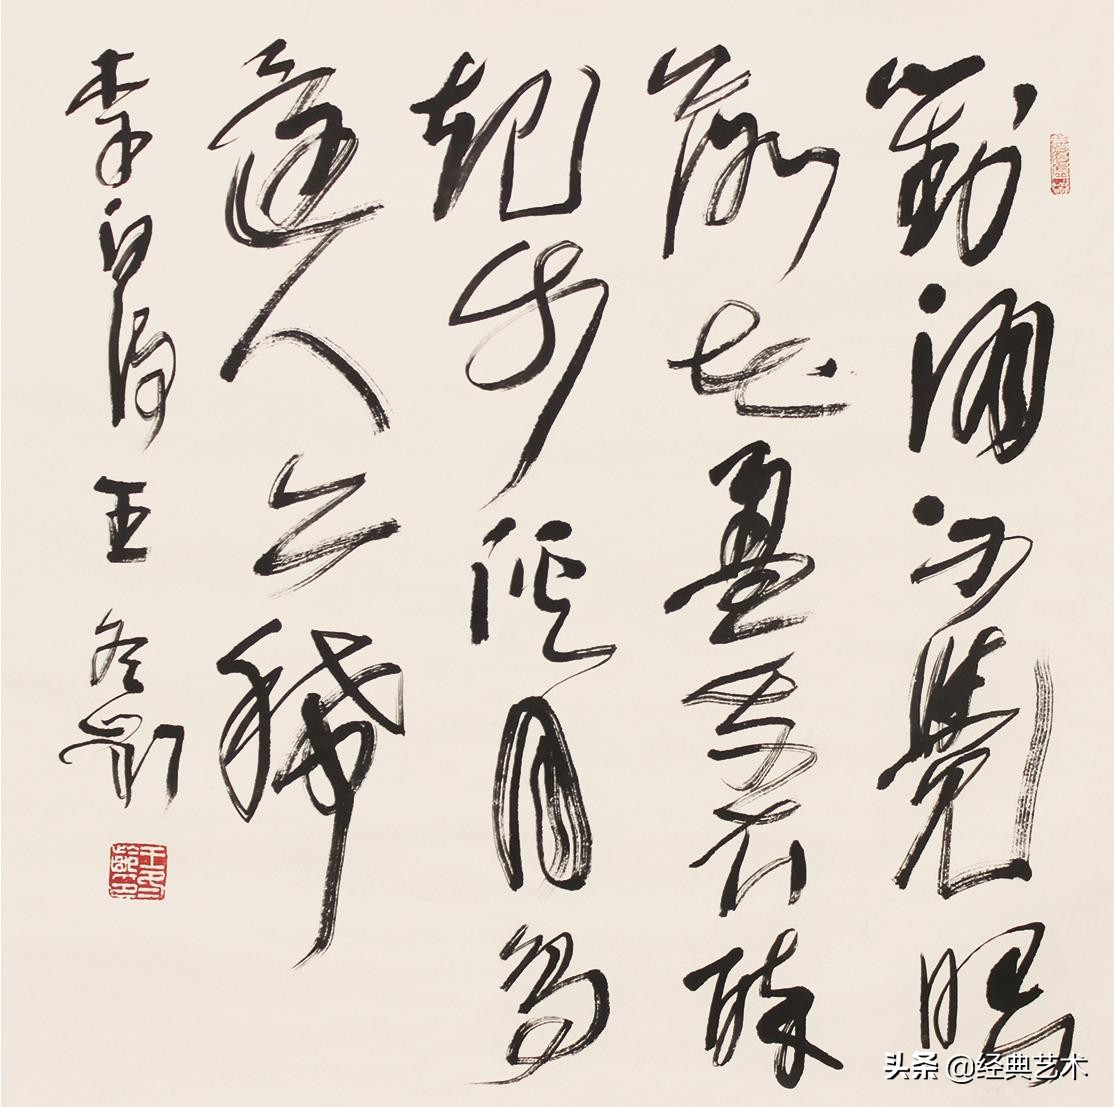 對酒不覺暝
落花盈我衣醉
起步溪月鳥
還人亦稀
李白詩 王冬齡
头条 @经典艺术